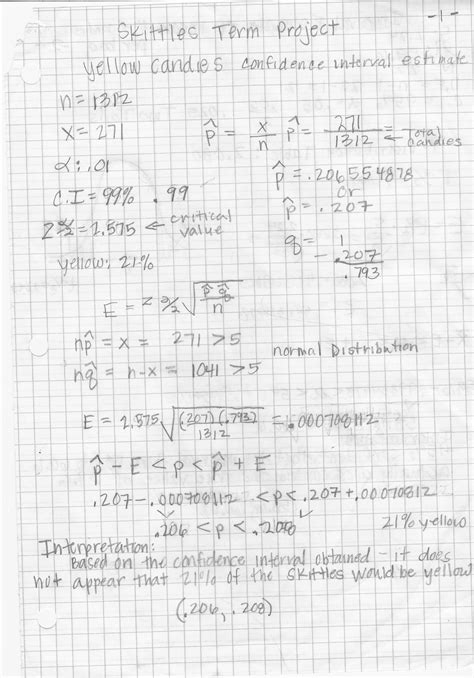 -1-
Skittles Term Project
yellow candies confidence interval estimate
n = 1312
x = 271
α: .01
C.I = 99% .99
Z α/2 = 2.575 ← critical value
yellow: 21%
p̂ = x/n p̂ = 271/1312 = ← Total candies
p̂ = .206554878
or
p̂ = .207
q = 1 - .207
.793
E = Z α/2 √(p̂ q̂ / n)
np̂ = x = 271 > 5
nq̂ = n-x = 1041 > 5
normal Distribution
E = 2.575 √((.207)(.793)/1312) = .000708112
p̂ - E < p < p̂ + E
.207-.000708112 < p < .207 + .00070812
.206 < p < .208
21% yellow
Interpretation:
Based on the confidence interval obtained - it does
not appear that 21% of the skittles would be yellow
(.206, .208)